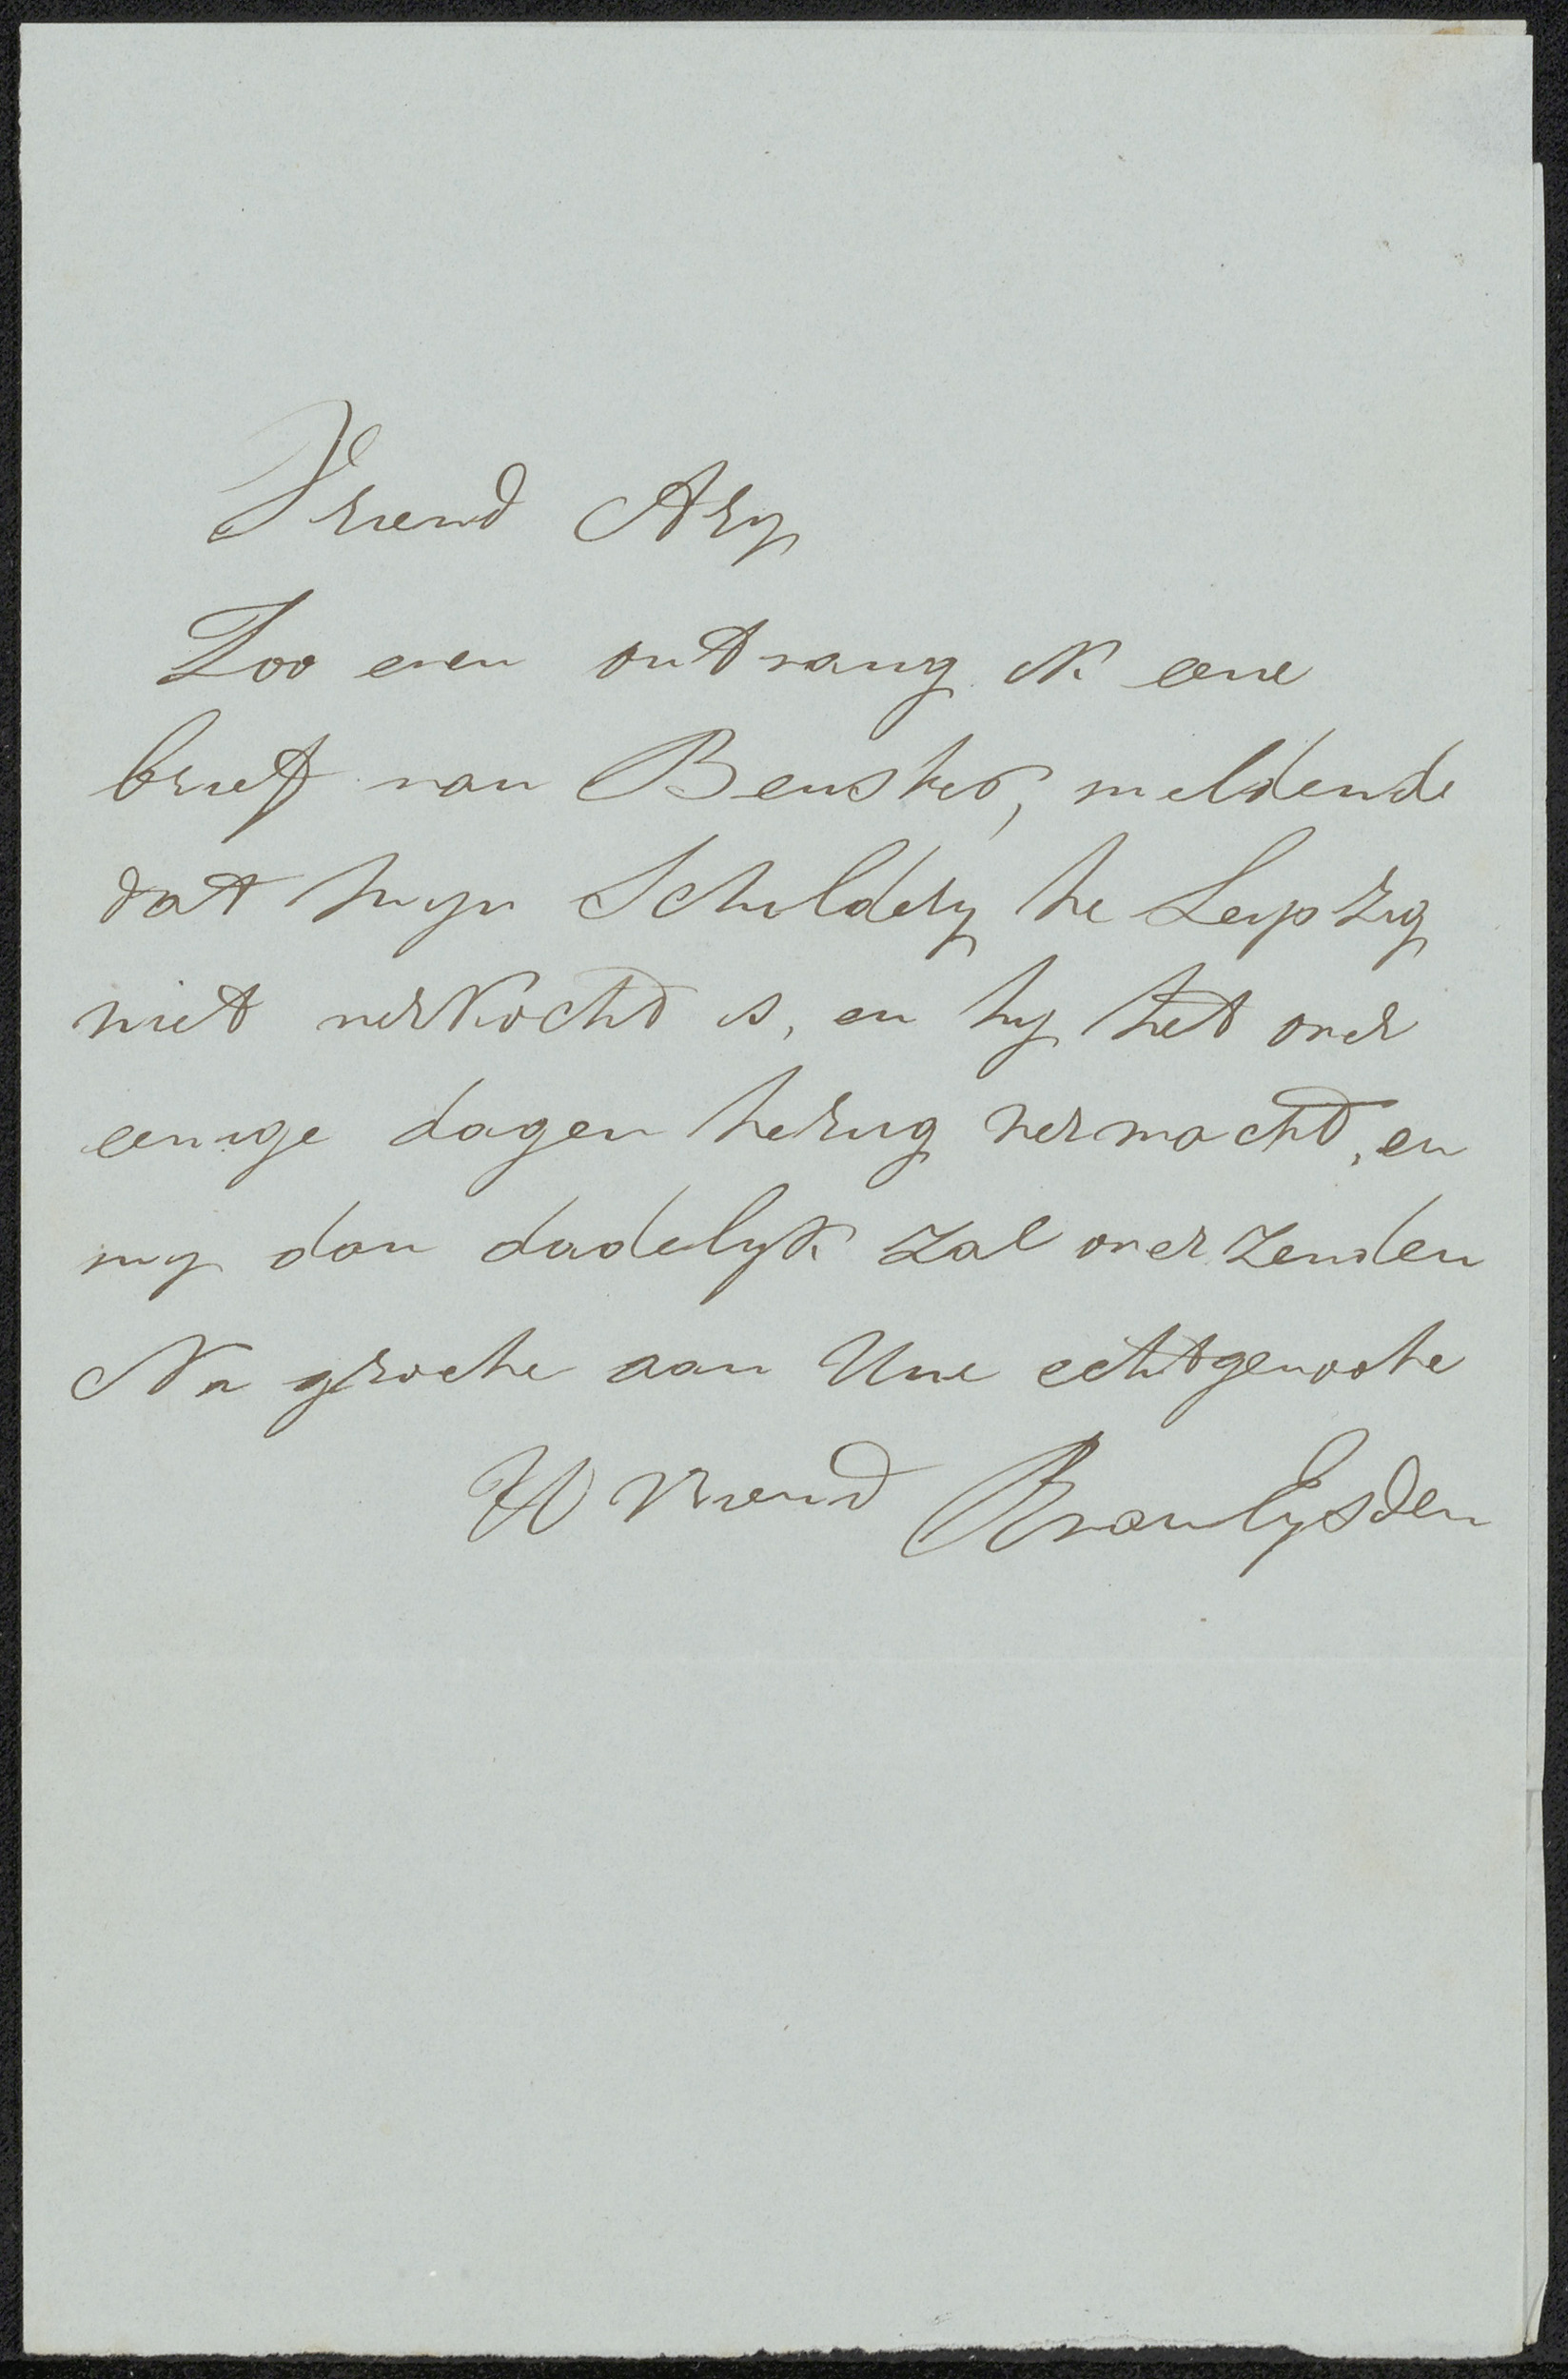 Vriend Ary
Zoo even ontvang ik eene
brief van Beusker, meldende
dat Uwyn Schildery te Leipzig
niet verkocht is, en hy het over
eenige dagen terug verwacht, en
my dan dadelyk zal over zenden
Na groete aan Uwe echtgenoote
UWvriend RvanEysden